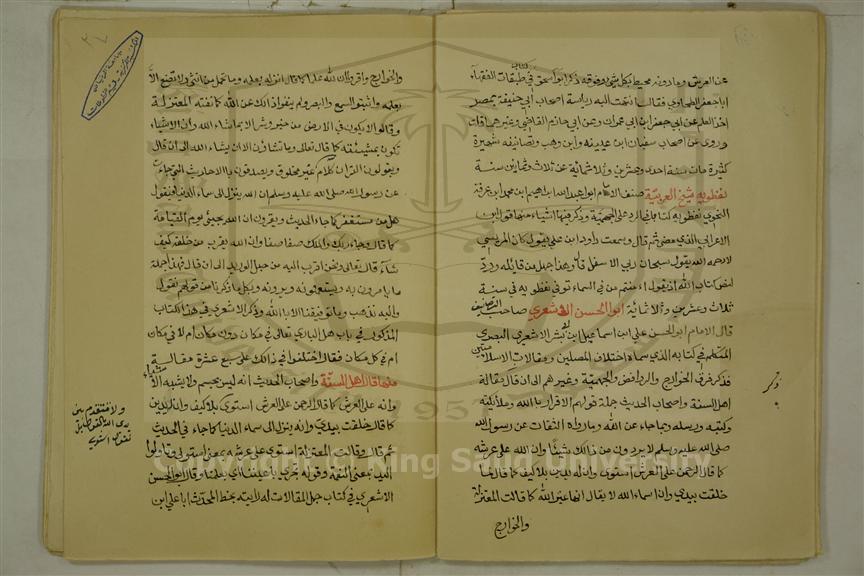 عن العرش وما دونه محيط بكل شي وفوقه ذكر ابو اسحق في كتاب طبقات الفقهاء
ابا جعفر الطحاوي فقال انتهت اليه رياسة اصحاب ابي حنيفة بمصر
اخذ العلم عن ابي جعفر ابن ابي عمران وعن ابي حازم القاضي وغيرهما قلت
وروى عن اصحاب سفيان ابن عيينه وابن وهب وتصانيفه شهيرة
كثيرة مات سنة احدى وعشرين وثلاثمائة عن ثلاث وثمانين سنة
نفطويه شيخ العربية صنف الامام ابو عبد الله ابراهيم ابن محمد ابن عرفة
النحوي نفطويه كتابا في الرد على الجهمية وذكر فيها اشياء منها قول ابن
الاعرابي الذي مضى ثم قال وسمعت داود ابن علي يقول كان المريسي
لا رحمه الله يقول سبحان ربي الاسفل قال وهذا جهل من قائله ورد
لنص كتاب الله اذ يقول اءمنتم من في السماء توفي نفطويه في سنة
ثلاث وعشرين وثلاثمائة ابو الحسن الاشعري صاحب التصانيف
قال الامام ابو الحسن علي ابن اسماعيل ابن ابي بشر الاشعري البصري
المتكلم في كتابه الذي سماه اختلاف المصلين ومقالات الاسلاميين
فذكر فرق الخوارج والروافض والجهمية وغيرهم الى ان قال مقالة
اهل السنة واصحاب الحديث جملة قولهم الاقرار بالله وملائكته
وكتبه ورسله وبما جاء عن الله وما رواه الثقات عن رسول الله
صلى الله عليه وسلم لا يردون من ذالك شيئا وان الله على عرشه
كما قال الرحمن على العرش استوى وان له يدين بلا كيف كما قال لما
خلقت بيدي وان اسماء الله لا يقال انها غير الله كما قالت المعتزلة
والخوارج
والخوارج واقروا ان لله علما كما قال انزله بعلمه وما تحمل من انثى ولا تضع الا
بعلمه واثبتوا السمع والبصر ولم ينفوا ذالك عن الله كما نفته المعتزلة
وقالوا لا يكون في الارض من خير وشر الا ما شاء الله وان الاشياء
تكون بمشيئته كما قال تعالى وما تشاؤن الا ان يشاء الله الى ان قال
ويقولون القران كلام الله غير مخلوق ويصدقون بالاحاديث التي جاءت
عن رسول الله صلى الله عليه وسلم ان الله ينزل الى سماء الدنيا فيقول
هل من مستغفر كما جاء الحديث ويقرون ان الله يجيئ يوم القيامة
كما قال وجاء ربك والملك صفا صفا وان الله يقرب من خلقه كيف
شاء قال تعالى ونحن اقرب اليه من حبل الوريد الى ان قال فهذا جملة
ما يامرون به ويستعملونه ويرونه وبكل ما ذكرنا من قولهم نقول
واليه نذهب وما توفيقنا الا بالله وذكر الاشعري في هذا الكتاب
المذكور في باب هل الباري تعالى في مكان دون مكان ام لا في مكان
ام في كل مكان فقال اختلفوا في ذالك على سبع عشرة مقالة
منها قال اهل السنة واصحاب الحديث انه ليس بجسم ولا يشبه الاشياء
وانه على العرش كما قال الرحمن على العرش استوى
ولا نتقدم بين
يدي الله بالقول بل
نقول استوى
بلا كيف وان له يدين
كما قال خلقت بيدي وانه ينزل الى سماء الدنيا كما جاء في الحديث
ثم قال وقالت المعتزلة استوى على عرشه بمعنى استولى وتاولوا
اليد بمعنى النعمة وقوله تجري باعيننا اي بعلمنا وقال ابو الحسن
الاشعري في كتاب جمل المقالات له رايته بخط المحدث ابي علي ابن